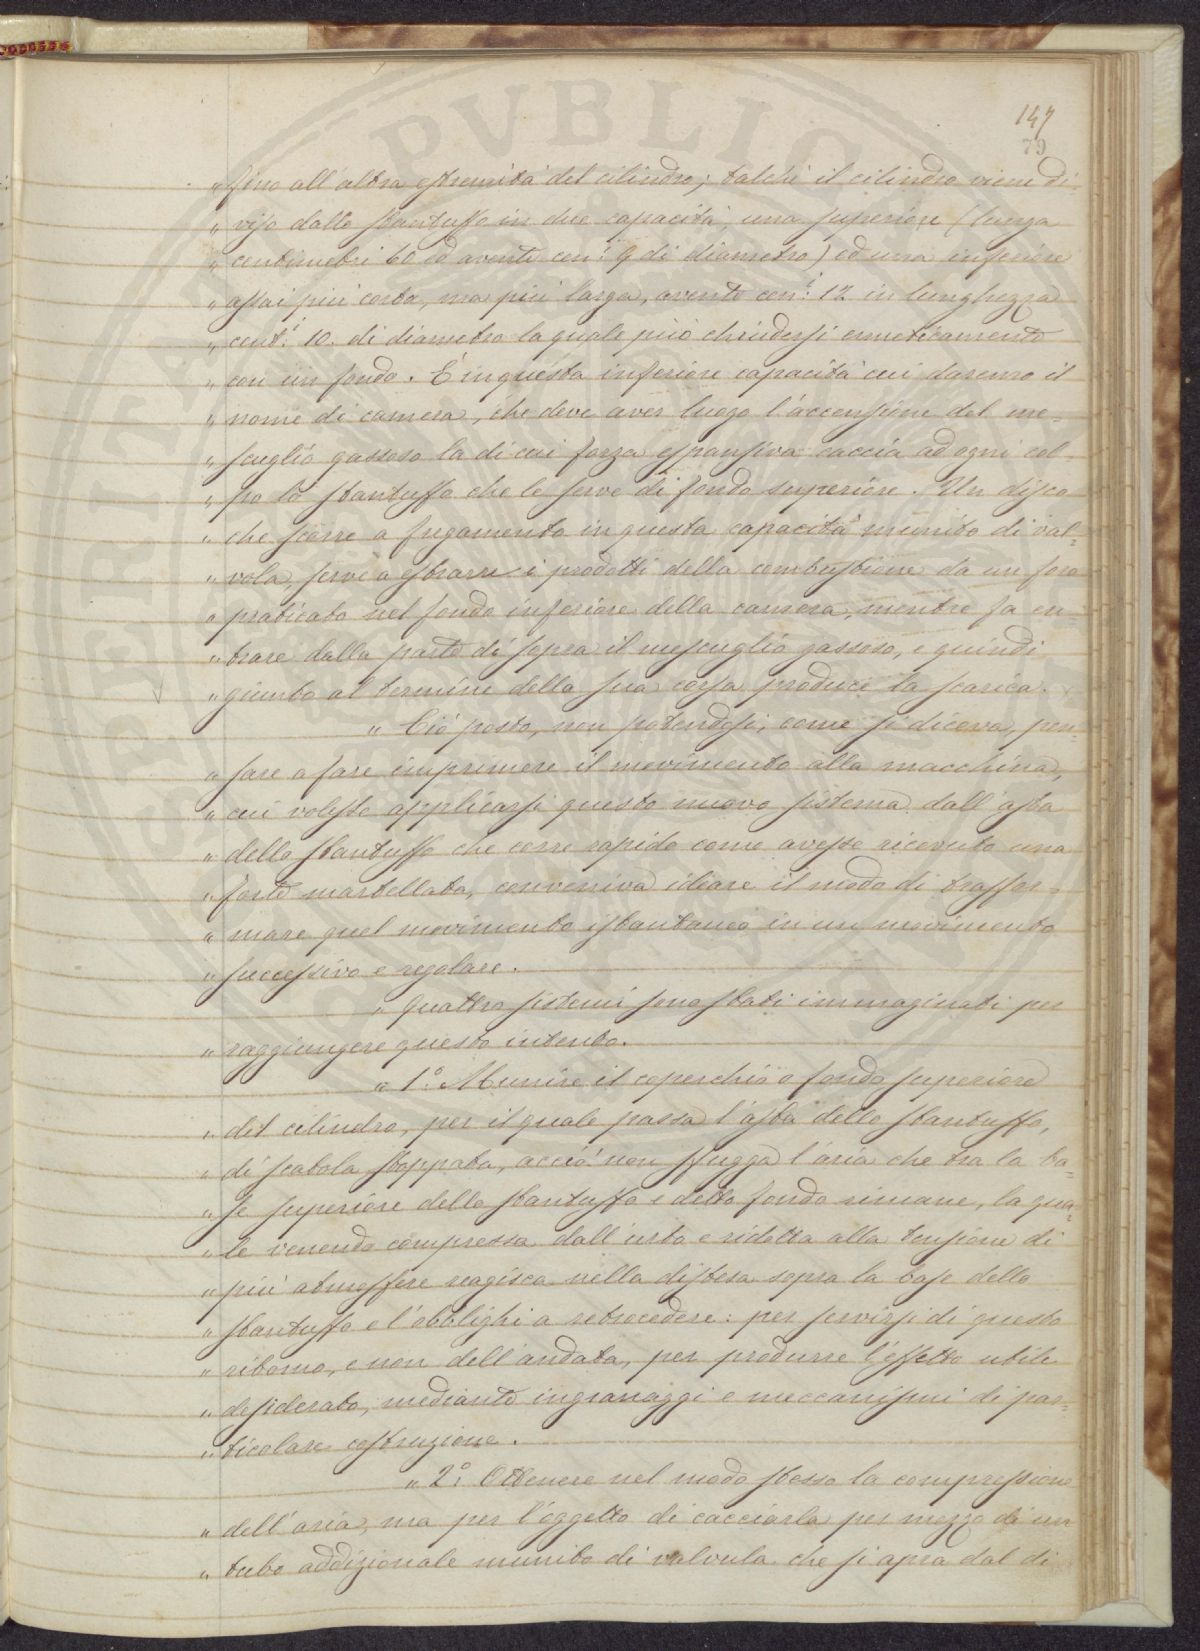 147
79
„ fino all'altra estremità del cilindro; talchè il cilindro viene di-
„ viso dallo stantuffo in due capacità, una superiore (lunga
„ centimetri 60 ed avente cen.i 9 di diametro) ed una inferiore
„ assai più corta, ma più larga, avente cen.i 12 in lunghezza
„ cent.i 10. di diametro la quale può chiudersi ermeticamente
„ con un fondo. È in questa inferiore capacità cui daremo il
„ nome di camera, che deve aver luogo l'accensione del me-
„ scuglio gassoso la di cui forza espansiva caccia ad ogni col-
„ po lo stantuffo che le serve di fondo superiore. Un disco
„ che scorre a fregamento in questa capacità munito di val-
„ vola, serve a estrarre i prodotti della combustione da un foro
„ praticato nel fondo inferiore della camera, mentre fa en-
„ trare dalla parte di sopra il mescuglio gassoso, e quindi
„ giunto al termine della sua corsa produce la scarica.
„ Ciò posto, non potendosi, come si diceva, pen-
„ sare a fare imprimere il movimento alla macchina,
„ cui voleste applicarsi questo nuovo sistema dall'asta
„ dello stantuffo che corre rapido come avesse ricevuto una
„ forte martellata, conveniva ideare il modo di trasfor-
„ mare quel movimento istantaneo in un movimento
„ successivo e regolare.
„ Quattro sistemi sono stati immaginati per
„ raggiungere questo intento.
„ 1.o Munire il coperchio o fondo superiore
„ del cilindro, per il quale passa l'asta dello stantuffo,
„ di scatola stoppata, acciò non sfugga l'aria che tra la ba-
„ se superiore dello stantuffo e detto fondo rimane, la qua-
„ le venendo compressa dall'urto e ridotta alla tensione di
„ più atmosfere reagisca nella distesa sopra la base dello
„ stantuffo e l'obblighi a retrocedere: per servirsi di questo
„ ritorno, e non dell'andata, per produrre l'effetto utile
„ desiderato, mediante ingranaggi e meccanismi di par-
„ ticolare costruzione.
„ 2.o Ottenere nel modo stesso la compressione
„ dell'aria, ma per l'oggetto di cacciarla per mezzo di un
„ tubo addizionale munito di valvula che si apra dal di